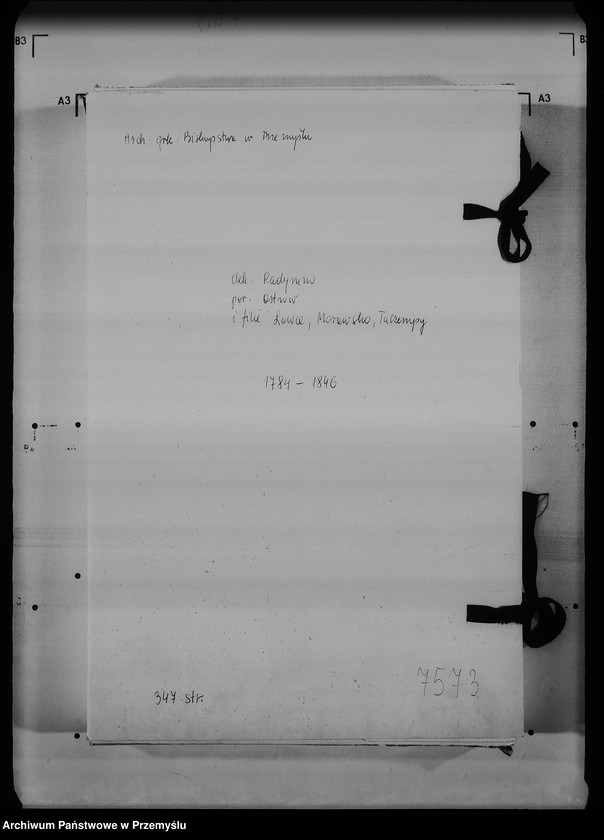 B3
A3
A3
Arch. grk. Biskupstwa w Przemyślu
dek. Radymno
par. Ostrów
i filie Łowce, Morawsko, Tuczempy
1784 - 1846
347 str.
7573
Archiwum Państwowe w Przemyślu